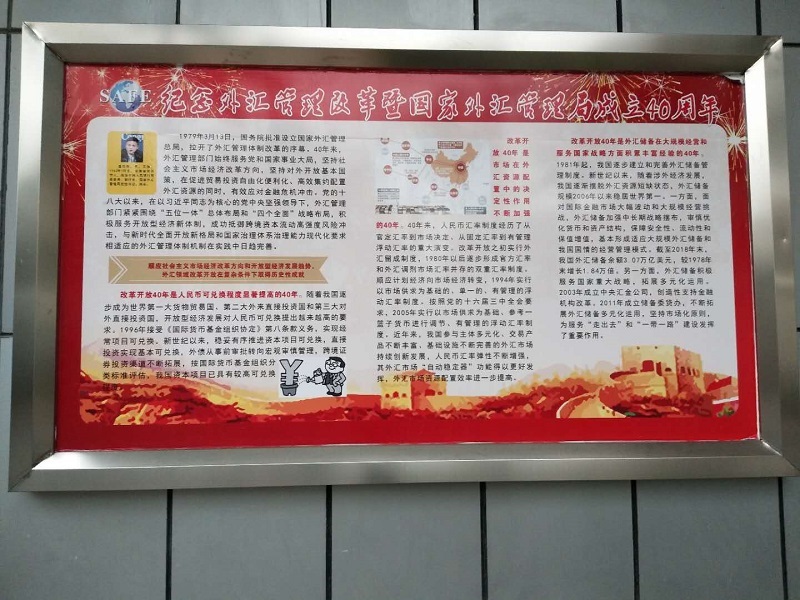 SAFE 纪念外汇管理改革暨国家外汇管理局成立40周年
1979年3月13日，国务院批准设立国家外汇管理
总局，拉开了外汇管理体制改革的序幕。40年来，
外汇管理部门始终服务党和国家事业大局，坚持社
会主义市场经济改革方向，坚持对外开放基本国
策，在促进贸易投资自由化便利化、高效集约配置
外汇资源的同时，有效应对金融危机冲击。党的十
八大以来，在以习近平同志为核心的党中央坚强领导下，外汇管理
部门紧紧围绕“五位一体”总体布局和“四个全面”战略布局，积
极服务开放型经济新体制，成功抵御跨境资本流动高强度风险冲
击，与新时代全面开放新格局和国家治理体系治理能力现代化要求
相适应的外汇管理体制机制在实践中日趋完善。
顺应社会主义市场经济改革方向和开放型经济发展趋势，
外汇领域改革开放在复杂条件下取得历史性成就
改革开放40年是人民币可兑换程度显著提高的40年。随着我国逐
步成为世界第一大货物贸易国、第二大外来直接投资国和第三大对
外直接投资国，开放型经济发展对人民币可兑换提出越来越高的要
求。1996年接受《国际货币基金组织协定》第八条款义务，实现经
常项目可兑换。新世纪以来，稳妥有序推进资本项目可兑换，直接
投资实现基本可兑换，外债从事前审批转向宏观审慎管理，跨境证
券投资渠道不断拓展，按国际货币基金组织分
类标准评估，我国资本项目已具有较高可兑换
¥
改革开
放40年是
市场在外
汇资源配
置中的决
定性作用
不断加强
的40年。40年来，人民币汇率制度经历了从
官定汇率到市场决定、从固定汇率到有管理
浮动汇率的重大演变。改革开放之初实行外
汇留成制度，1980年以后逐步形成官方汇率
和外汇调剂市场汇率并存的双重汇率制度。
顺应计划经济向市场经济转变，1994年实行
以市场供求为基础的、单一的、有管理的浮
动汇率制度。按照党的十六届三中全会要
求，2005年实行以市场供求为基础、参考一
篮子货币进行调节、有管理的浮动汇率制
度。近年来，我国参与主体多元化、交易产
品不断丰富、基础设施不断完善的外汇市场
持续创新发展，人民币汇率弹性不断增强，
其外汇市场“自动稳定器”功能得以更好发
挥，外汇市场资源配置效率进一步提高。
改革开放40年是外汇储备在大规模经营和
服务国家战略方面积累丰富经验的40年。
1981年起，我国逐步建立和完善外汇储备管
理制度。新世纪以来，随着涉外经济发展，
我国逐渐摆脱外汇资源短缺状态，外汇储备
规模2006年以来稳居世界第一。一方面，面
对国际金融市场大幅波动和大规模经营挑
战，外汇储备加强中长期战略摆布，审慎优
化货币和资产结构，保障安全性、流动性和
保值增值，基本形成适应大规模外汇储备和
我国国情的经营管理模式。截至2018年末，
我国外汇储备余额3.07万亿美元，较1978年
末增长1.84万倍。另一方面，外汇储备积极
服务国家重大战略，拓展多元化运用。
2003年成立中央汇金公司，创造性支持金融
机构改革。2011年成立储备委贷办，不断拓
展外汇储备多元化运用，坚持市场化原则，
为服务“走出去”和“一带一路”建设发挥
了重要作用。